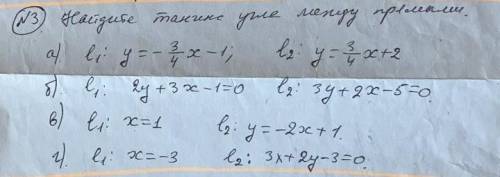 №3 Найдите тангенс угла между прямыми.
а) l₁: y = -3/4 x - 1; l₂: y = 3/4 x + 2
б) l₁: 2y + 3x - 1 = 0 l₂: 3y + 2x - 5 = 0.
в) l₁: x = 1 l₂: y = -2x + 1.
г) l₁: x = -3 l₂: 3x + 2y - 3 = 0.